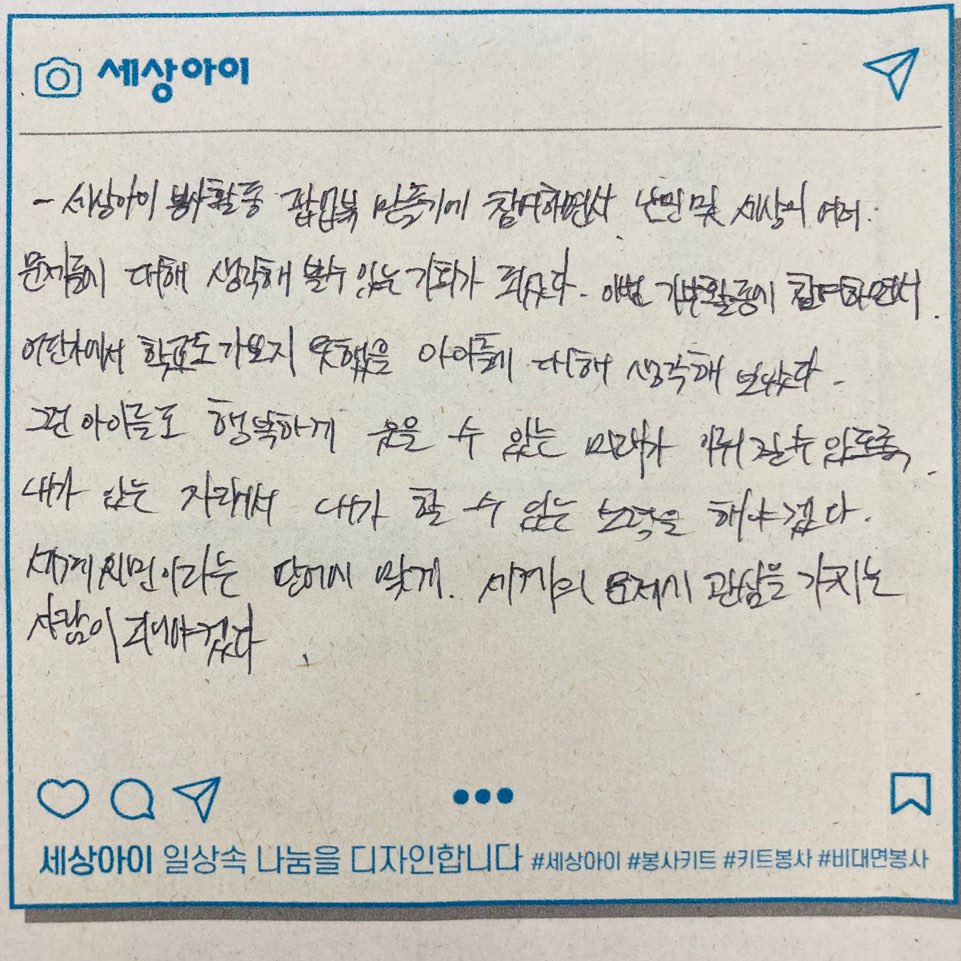 세상아이
- 세상아이 봉사활동 팝업북 만들기에 참여하면서 난민 및 세상의 여러
문제들에 대해 생각해 볼 수 있는 기회가 되었다. 이번 기부활동에 참여하면서
어딘가에서 학교도 가보지 못했을 아이들에 대해 생각해 보았다.
그런 아이들도 행복하게 웃을 수 있는 미래가 이뤄질 수 있도록,
내가 있는 자리에서 내가 할 수 있는 노력을 해야겠다.
세계시민이라는 단어에 맞게. 세계의 문제에 관심을 가지는
사람이 되어야겠다.
세상아이 일상속 나눔을 디자인합니다 #세상아이 #봉사키트 #키트봉사 #비대면봉사